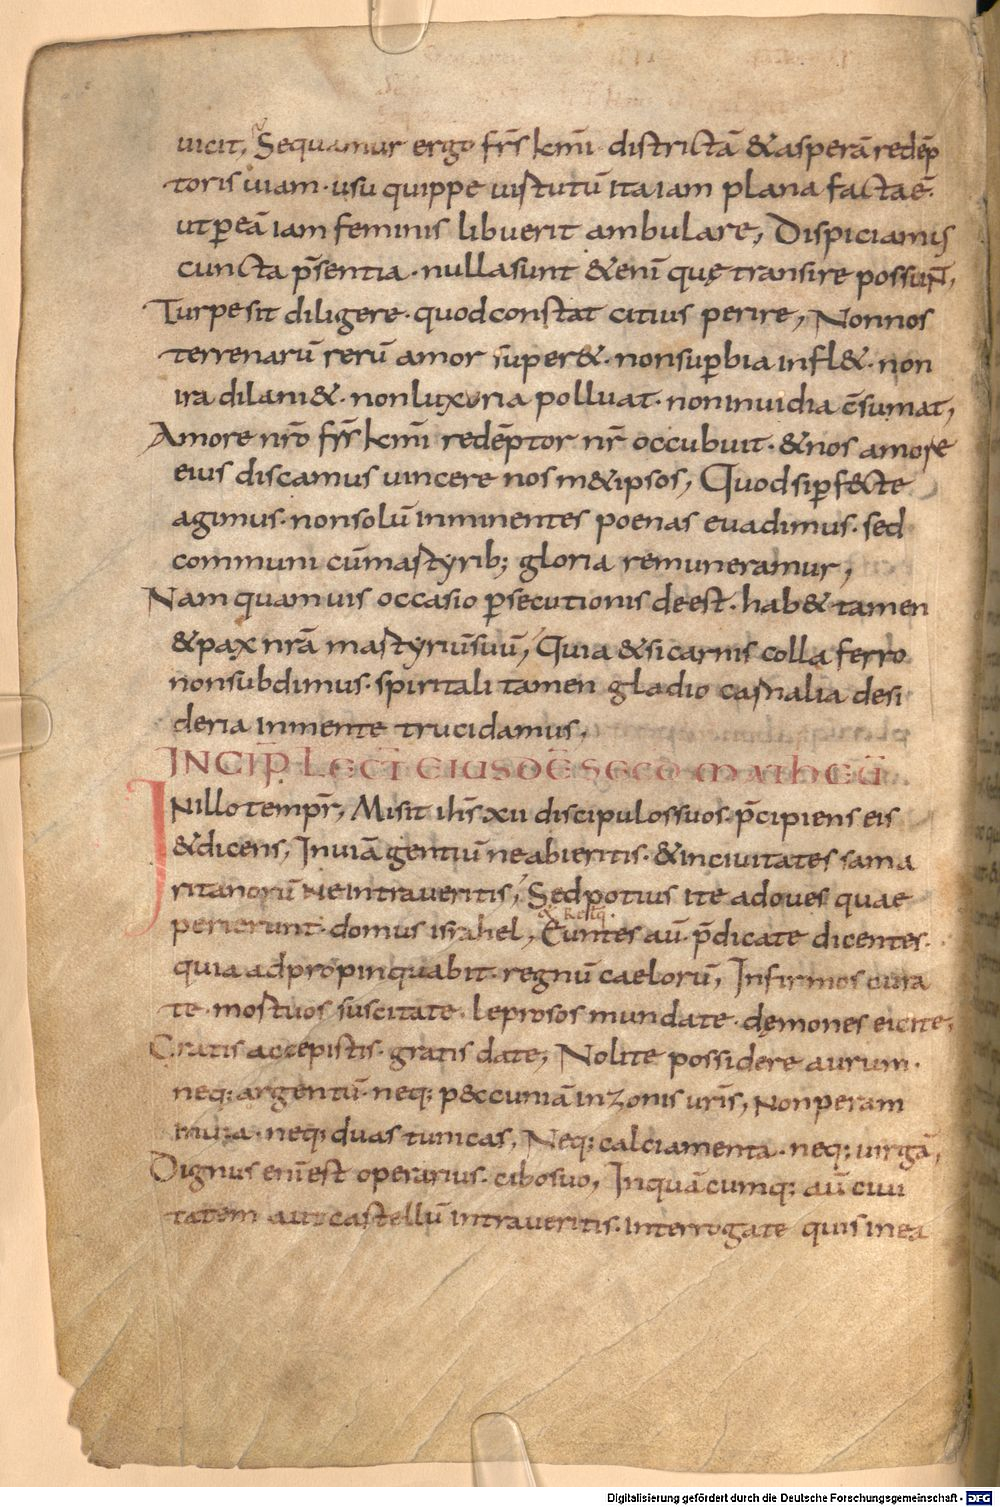 uicit, Sequamur ergo frs̄ kmī districtā &asperā redēp
toris uiam · usu quippe uirtutū ita iam plana factaē·
ut ꝑ eā iam feminis libuerit ambulare, Dispiciamus
cuncta p̄sentia · nulla sunt &enī quę transire possunt,
Turpe sit diligere · quod constat citius perire, Non nos
terrenarū rerū amor super& · non suꝑbia infl& · non
ira dilani& · non luxuria polluat · non inuidia c̄sumat,
Amore nr̄o frs̄ kmī redēptor nr̄ occubuit · & nos amore
eius discamus uincere nosm&ipsos, Quod si ꝑf&cte
agimus · non solū inminentes poenas euadimus · sed
communi cū martyrib; gloria remuneramur,
Nam quam uis occasio ꝑsecutionis deest · hab& tamen
& pax nr̄a martyriū suū, Quia & si carnis colla ferro
non subdimus · spiritali tamen gladio carnalia desi
deria in mente trucidamus,
INCIP̄ LECT̄ EIUSDĒ SECD̄ MATHEŪ
IN illo tempr̄, Misit ih̄s xii discipulos suos · p̄cipiens eis
& dicens, In uiā gentiū ne abieritis · & in ciuitates sama
ritanorū ne intraueritis, Sed potius ite ad oues quae
& reliq̄ ·
perierunt · domus israhel, Euntes aū · p̄dicate dicentes ·
quia adpropinquabit · regnū caelorū, Infirmos cura
te · mortuos suscitate · leprosos mundate · dęmones eicite,
Gratis accepistis · gratis date, Nolite possidere aurum ·
neq; argentū · neq; p&cuniā in zonis ur̄is, Non peram
in uia · neq; duas tunicas, Neq; calciamenta · neq; uirgā,
Dignus enī est operarius · cibo suo, In quā cumq; aū ciui
tatem aut castellū intraueritis · interrogate quis in ea
Digitalisierung gefördert durch die Deutsche Forschungsgemeinschaft - DFG